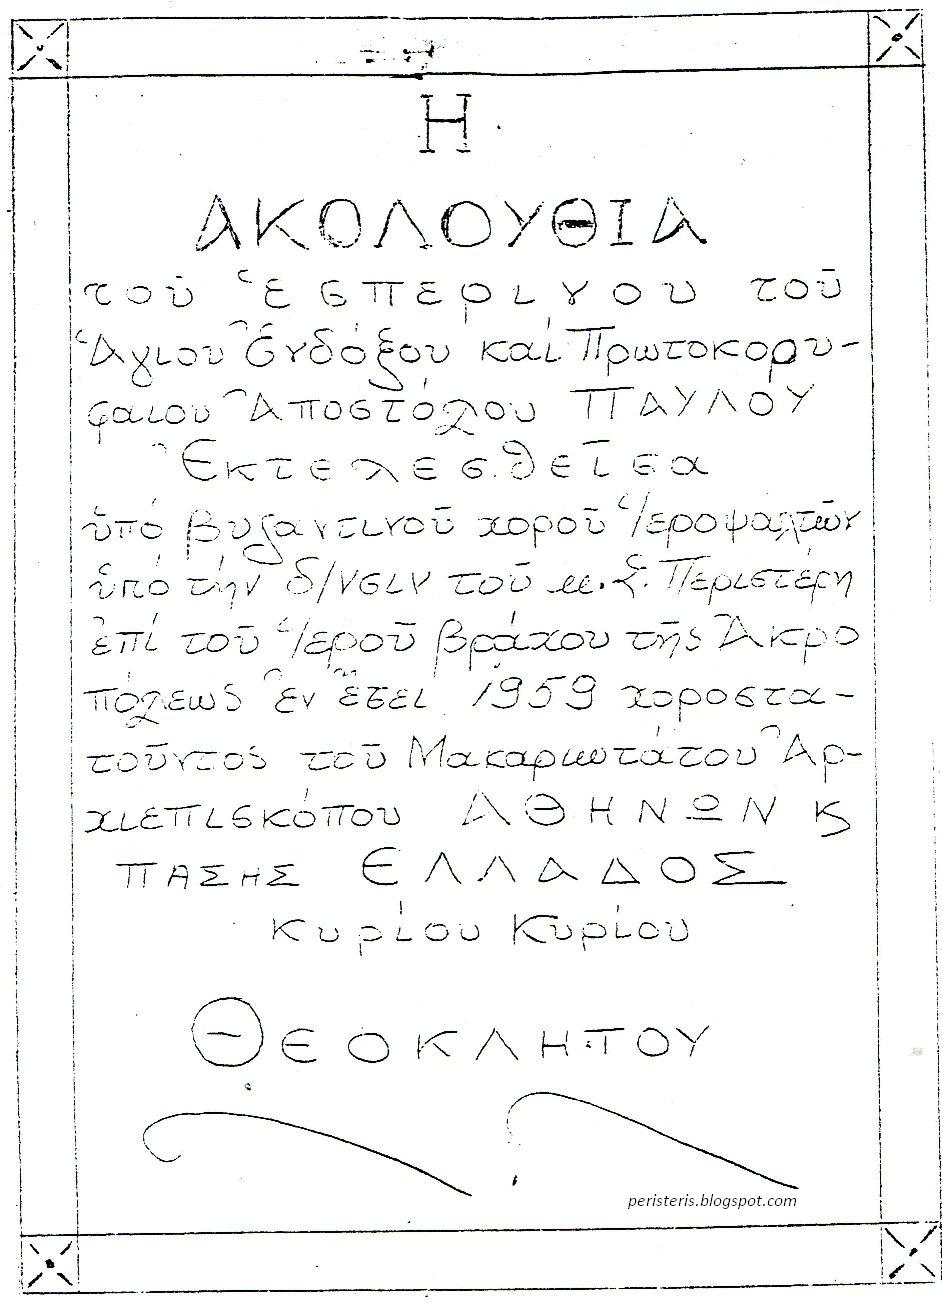 Η
ΑΚΟΛΟΥΘΙΑ
τοῦ Ἑσπερινοῦ τοῦ
Ἁγίου Ἐνδόξου καί Πρωτοκορυ-
φαίου Ἀποστόλου ΠΑΥΛΟΥ
Ἐκτελεσθεῖσα
ὑπό βυζαντινοῦ χοροῦ Ἱεροψαλτῶν
ὑπό τήν δ/νσιν τοῦ κ. Σ. Περιστέρη
ἐπί τοῦ Ἱεροῦ βράχου τῆς Ἀκρο
πόλεως ἐν ἔτει 1959 χοροστα-
τοῦντος τοῦ Μακαριωτάτου Ἀρ-
χιεπισκόπου ΑΘΗΝΩΝ Κ
ΠΑΣΗΣ ΕΛΛΑΔΟΣ
Κυρίου Κυρίου
ΘΕΟΚΛΗΤΟΥ
peristeris.blogspot.com